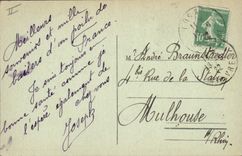 Meilleurs
souvenirs et mille
baisers d'un poilu de
France
Je suis toujours en
bonne santé comme je
l'espère également de
chez vous
Joseph
André Braun
Rue de la Station
Mulhouse
Ht Rhin